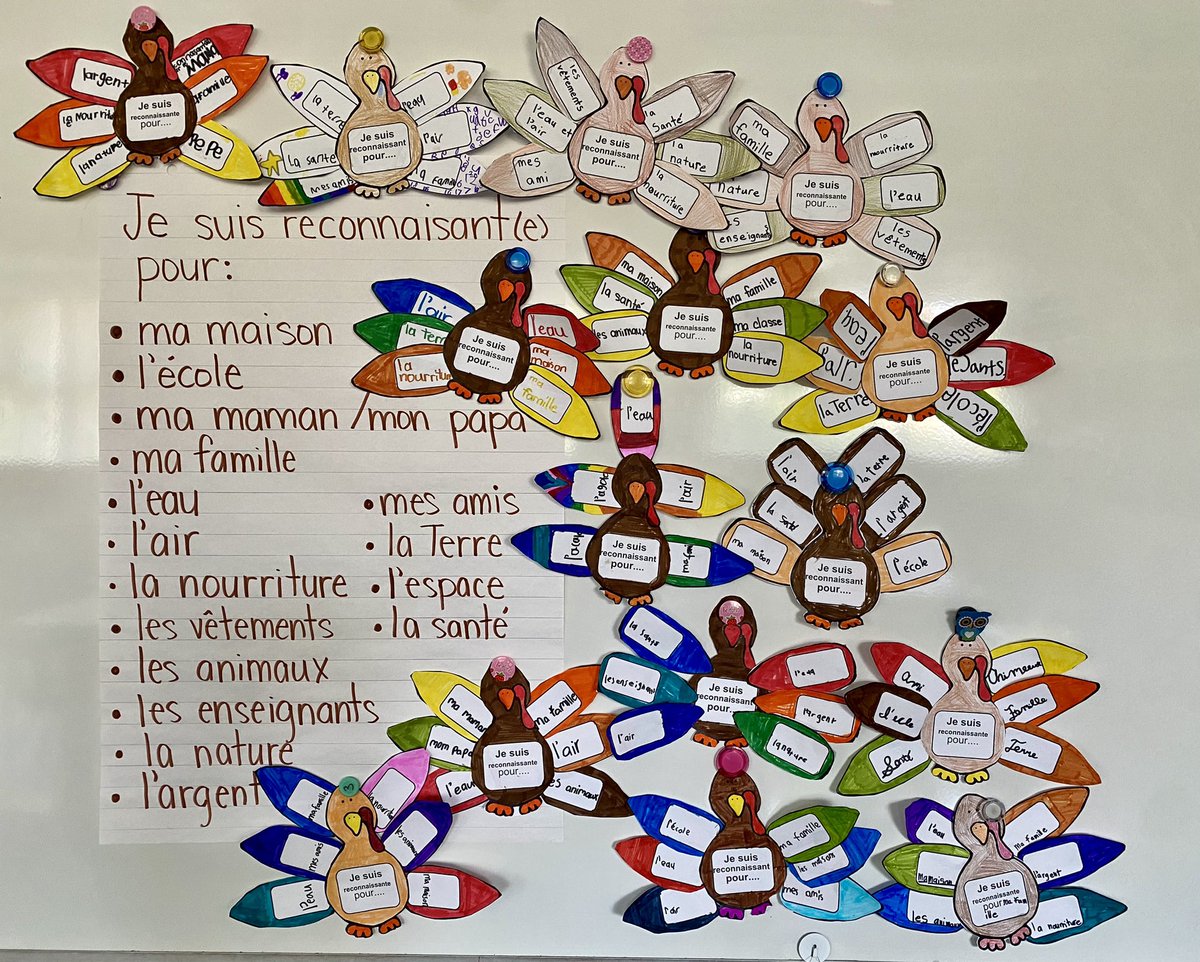 largent
la Nourrite
la nature
Je suis
reconnaissante
pour....
famille
Pepe
la terre
La santé
mes amis
Je suis
reconnaissant
pour....
l'eau
l'air
la famille
les vêtements
l'eau et l'air
mes ami
Je suis
reconnaissant
pour....
la Santé
la nature
la nourriture
ma famille
nature
les enseignants
Je suis
reconnaissant
pour....
la nourriture
l'eau
les vêtements
Je suis reconnaisant(e)
pour:
• ma maison
• l'école
• ma maman / mon papa
• ma famille
• l'eau
• mes amis
• l'air
• la Terre
• la nourriture
• l'espace
• les vêtements
• la santé
• les animaux
• les enseignants
• la nature
• l'argent
l'air
la Terre
la nourriture
Je suis
reconnaissante
pour....
l'eau
ma maison
ma famille
ma maison
la santé
les animaux
Je suis
reconnaissante
pour....
ma famille
ma classe
la nourriture
l'eau
l'air.
la Terre
Je suis
reconnaissante
pour....
l'argent
l'école
l'eau
l'air
Je suis
reconnaissante
pour....
l'air
la santé
ma maison
la terre
l'argent
l'école
Je suis
reconnaissante
pour....
la santé
les enseignant
l'air
Je suis
reconnaissante
pour....
l'eau
l'argent
la nature
Ami
Santé
Je suis
reconnaissante
pour....
Famille
Terre
ma maman
mon Papa
l'eau
Je suis
reconnaissante
pour....
ma famille
l'air
les animaux
ma famille
mes amis
l'eau
Je suis
reconnaissante
pour....
la nourriture
les animaux
ma maison
l'école
l'eau
l'air
Je suis
reconnaissante
pour....
ma famille
les maison
mes amis
l'eau
ma maison
les animaux
Je suis
reconnaissante
pour....ma fam
ille
Ma famille
l'argent
la nourriture